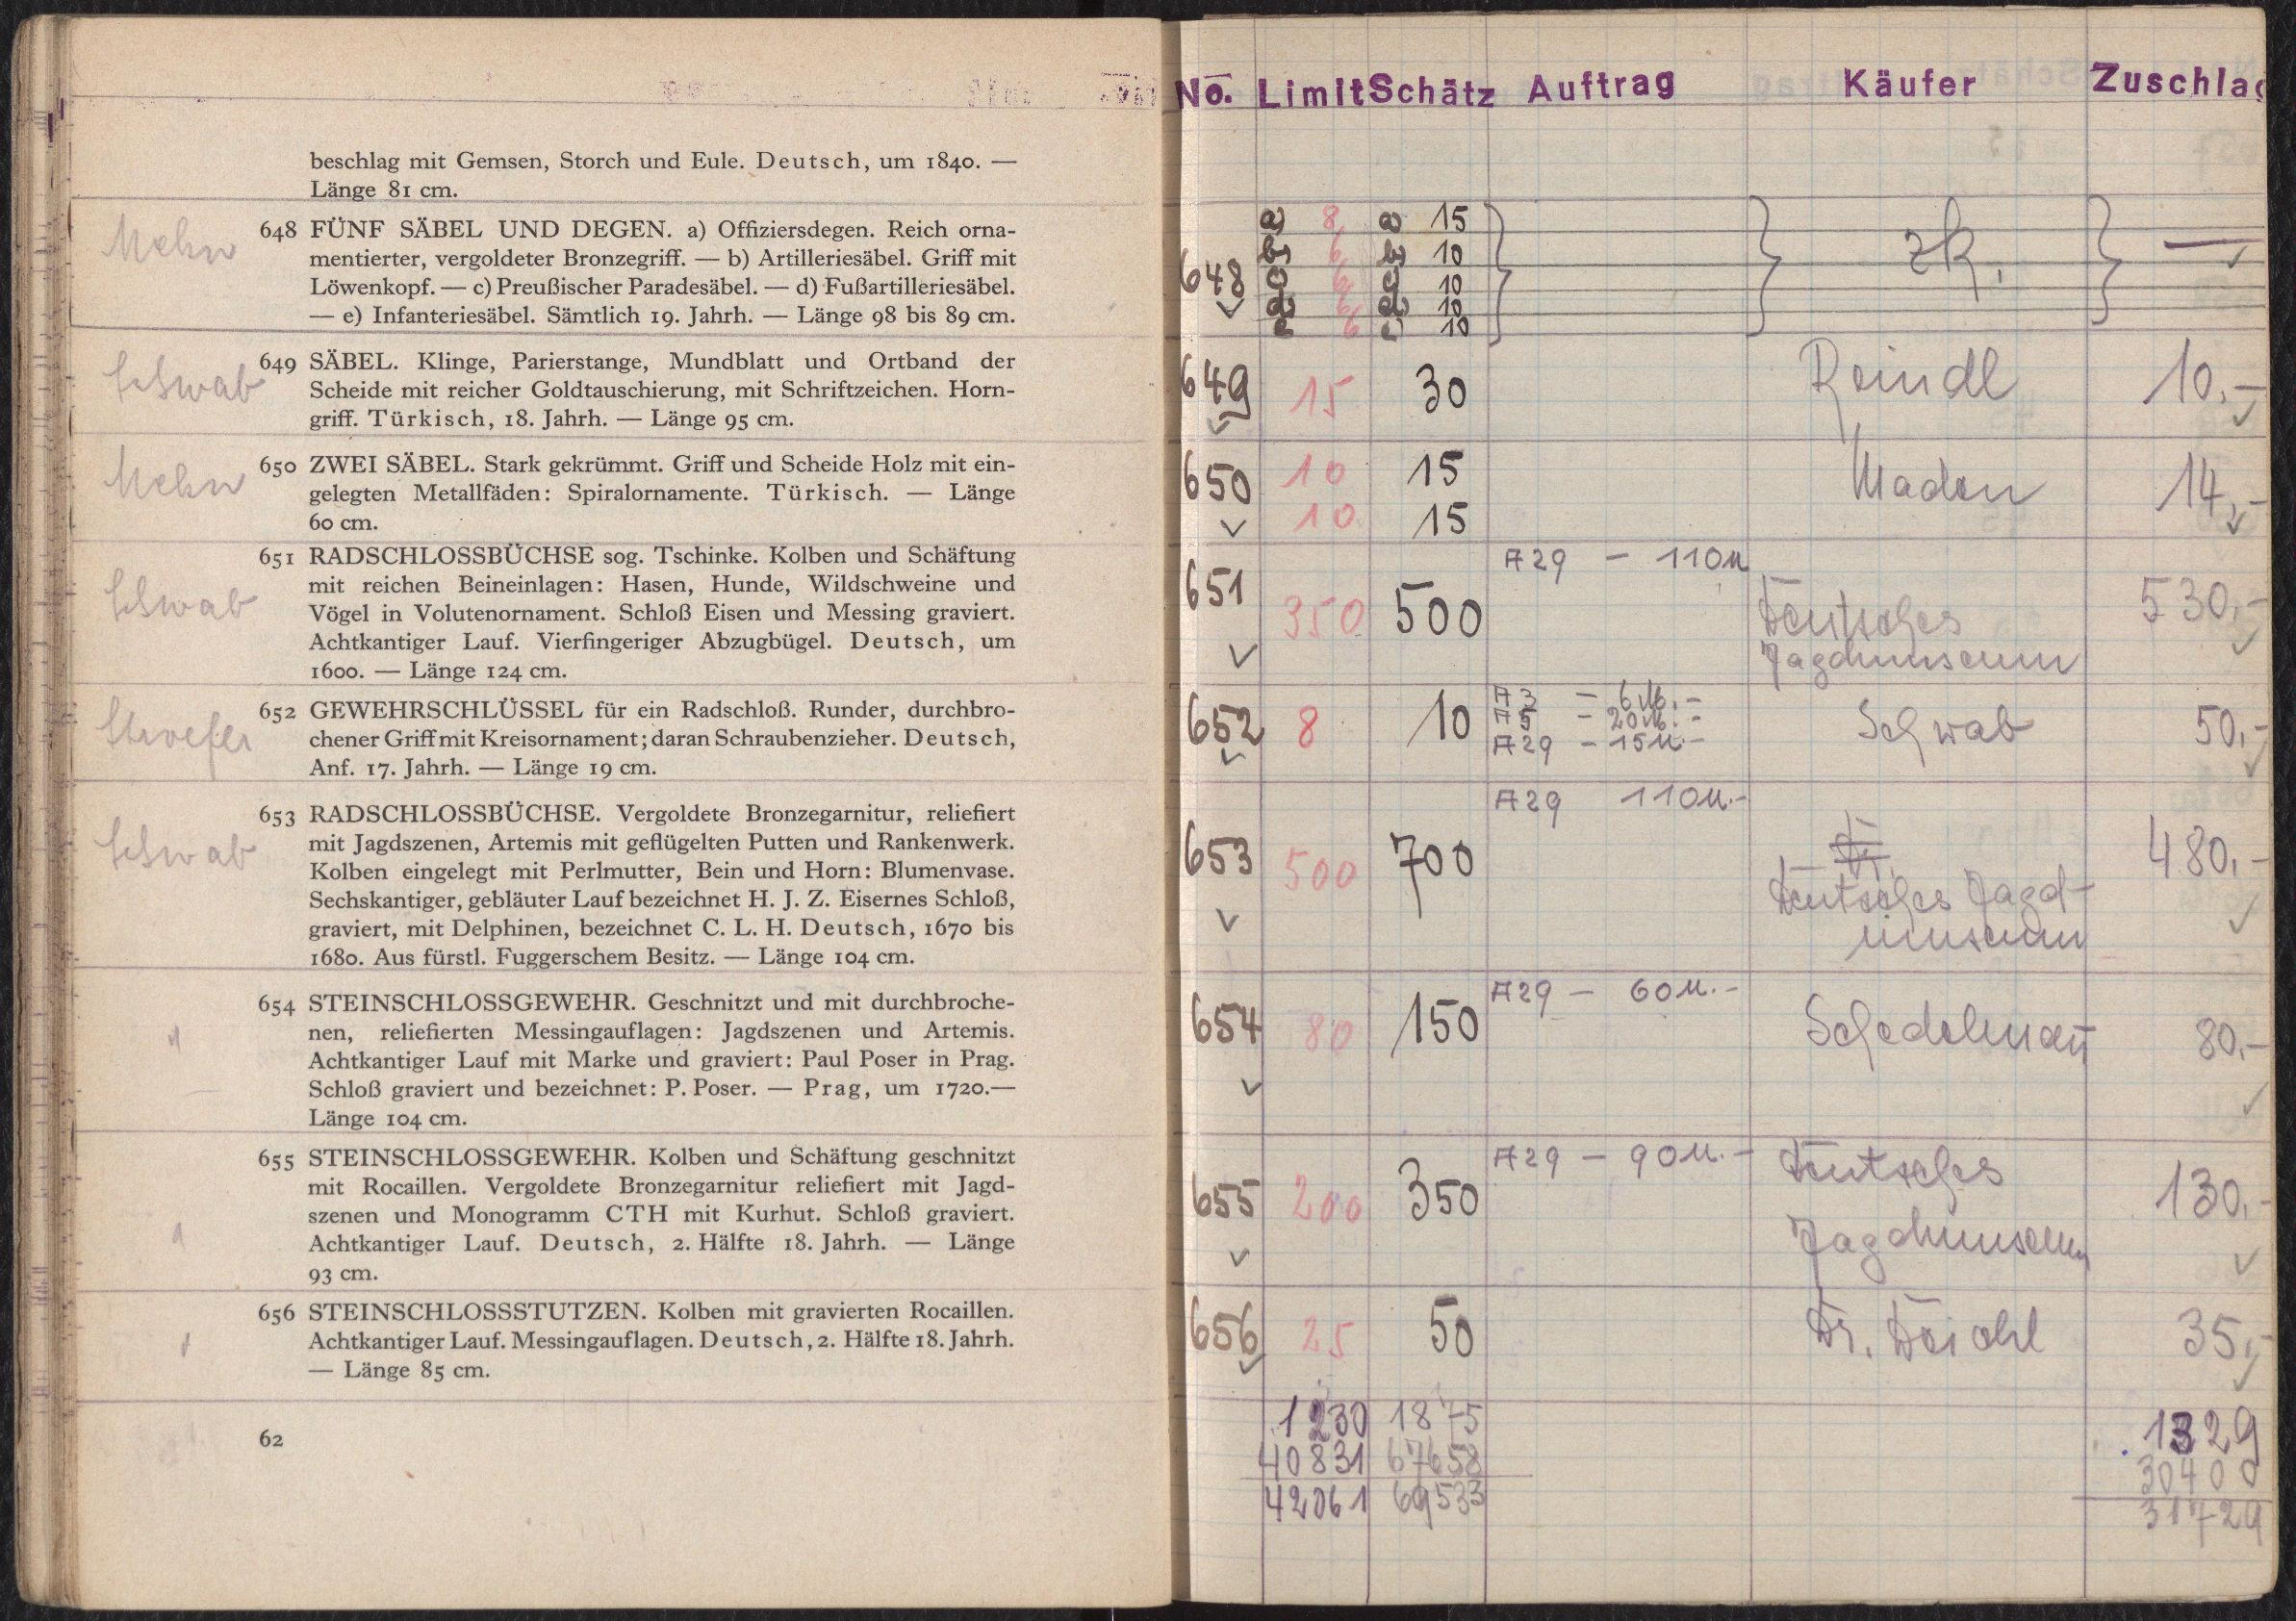 beschlag mit Gemsen, Storch und Eule. Deutsch, um 1840. —
Länge 81 cm.
Mehn
648 FÜNF SÄBEL UND DEGEN. a) Offiziersdegen. Reich orna-
mentierter, vergoldeter Bronzegriff. — b) Artilleriesäbel. Griff mit
Löwenkopf. — c) Preußischer Paradesäbel. — d) Fußartilleriesäbel.
— e) Infanteriesäbel. Sämtlich 19. Jahrh. — Länge 98 bis 89 cm.
Schwab
649 SÄBEL. Klinge, Parierstange, Mundblatt und Ortband der
Scheide mit reicher Goldtauschierung, mit Schriftzeichen. Horn-
griff. Türkisch, 18. Jahrh. — Länge 95 cm.
Mehn
650 ZWEI SÄBEL. Stark gekrümmt. Griff und Scheide Holz mit ein-
gelegten Metallfäden: Spiralornamente. Türkisch. — Länge
60 cm.
Schwab
651 RADSCHLOSSBÜCHSE sog. Tschinke. Kolben und Schäftung
mit reichen Beineinlagen: Hasen, Hunde, Wildschweine und
Vögel in Volutenornament. Schloß Eisen und Messing graviert.
Achtkantiger Lauf. Vierfingeriger Abzugbügel. Deutsch, um
1600. — Länge 124 cm.
652 GEWEHRSCHLÜSSEL für ein Radschloß. Runder, durchbro-
chener Griff mit Kreisornament; daran Schraubenzieher. Deutsch,
Anf. 17. Jahrh. — Länge 19 cm.
Schwab
653 RADSCHLOSSBÜCHSE. Vergoldete Bronzegarnitur, reliefiert
mit Jagdszenen, Artemis mit geflügelten Putten und Rankenwerk.
Kolben eingelegt mit Perlmutter, Bein und Horn: Blumenvase.
Sechskantiger, gebläuter Lauf bezeichnet H. J. Z. Eisernes Schloß,
graviert, mit Delphinen, bezeichnet C. L. H. Deutsch, 1670 bis
1680. Aus fürstl. Fuggerschem Besitz. — Länge 104 cm.
"
654 STEINSCHLOSSGEWEHR. Geschnitzt und mit durchbroche-
nen, reliefierten Messingauflagen: Jagdszenen und Artemis.
Achtkantiger Lauf mit Marke und graviert: Paul Poser in Prag.
Schloß graviert und bezeichnet: P. Poser. — Prag, um 1720.—
Länge 104 cm.
"
655 STEINSCHLOSSGEWEHR. Kolben und Schäftung geschnitzt
mit Rocaillen. Vergoldete Bronzegarnitur reliefiert mit Jagd-
szenen und Monogramm CTH mit Kurhut. Schloß graviert.
Achtkantiger Lauf. Deutsch, 2. Hälfte 18. Jahrh. — Länge
93 cm.
"
656 STEINSCHLOSSSTUTZEN. Kolben mit gravierten Rocaillen.
Achtkantiger Lauf. Messingauflagen. Deutsch, 2. Hälfte 18. Jahrh.
— Länge 85 cm.
62
No. Limit Schätz Auftrag Käufer Zuschlag
648 a) 8 a) 15 zk. —
b) 6 b) 10
c) 6 c) 10
d) 6 d) 10
e) 6 e) 10
649 15 30 Reindl 10.-
650 10 15 Maden 14.-
10 15
651 350 500 A29 - 110 M Deutsches 530.-
Jagdmuseum
652 8 10 A3 - 6 M.- Schwab 50.-
A5 - 20 M.-
A29 - 15 M.-
653 500 700 A29 110 M.- Dr. 480.-
Deutsches Jagd-
museum
654 80 150 A29 - 60 M.- Schedelmañ 80.-
655 200 350 A29 - 90 M.- Deutsches 130.-
Jagdmuseum
656 25 50 Dr. Deichl 35.-
1230 1875 1329
40831 67658 30400
42061 69533 31729